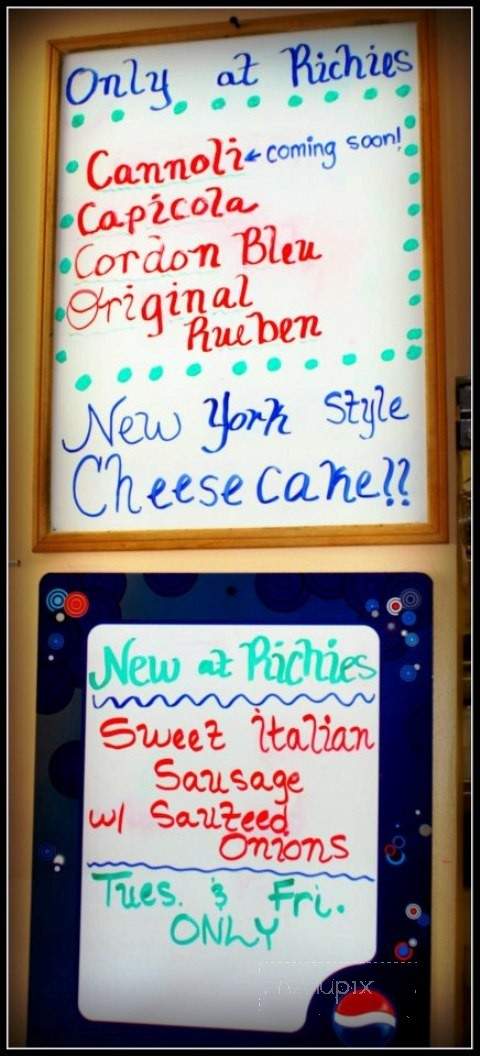 Only at Richies
Cannoli ← coming soon!
Capicola
Cordon Bleu
Original
Rueben
New York Style
Cheesecake!!
New at Richies
Sweet Italian
Sausage
w/ Sauteed
Onions
Tues. & Fri.
ONLY